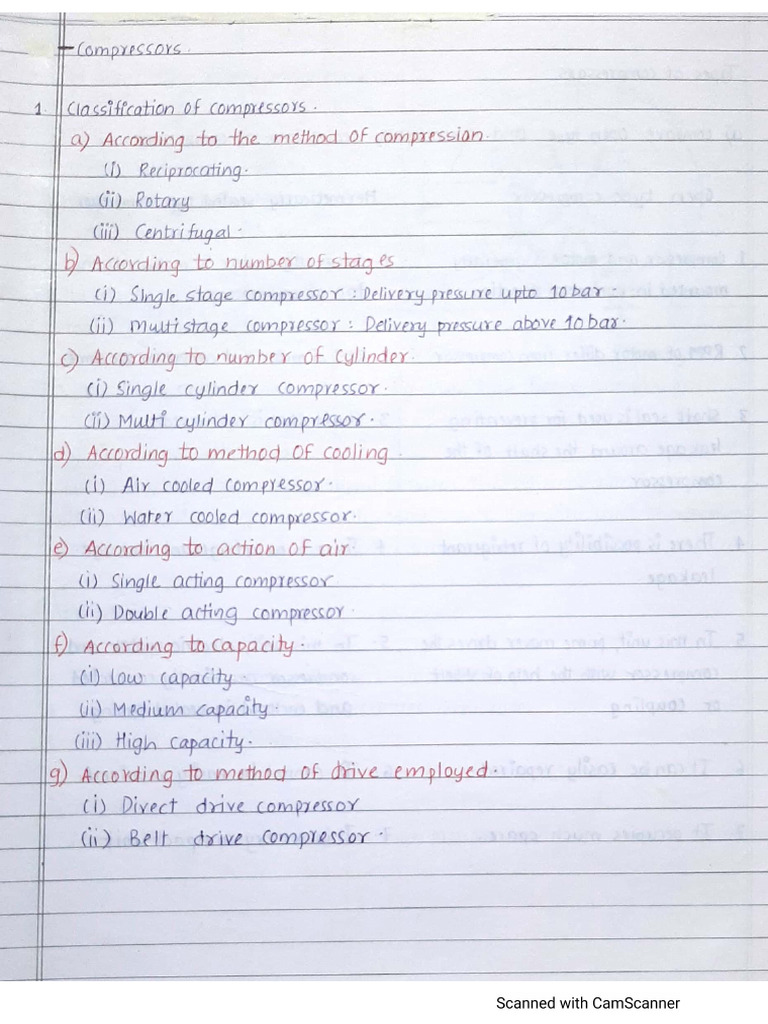 Compressors.
1. Classification of compressors.
a) According to the method of compression.
(i) Reciprocating.
(ii) Rotary
(iii) Centrifugal.
b) According to number of stages
(i) Single stage compressor : Delivery pressure upto 10 bar.
(ii) Multistage compressor : Delivery pressure above 10 bar.
c) According to number of cylinder.
(i) Single cylinder compressor.
(ii) Multi cylinder compressor.
d) According to method of cooling.
(i) Air cooled compressor.
(ii) Water cooled compressor.
e) According to action of air.
(i) Single acting compressor
(ii) Double acting compressor.
f) According to capacity.
(i) Low capacity
(ii) Medium capacity.
(iii) High capacity.
g) According to method of drive employed.
(i) Direct drive compressor
(ii) Belt drive compressor.
Scanned with CamScanner